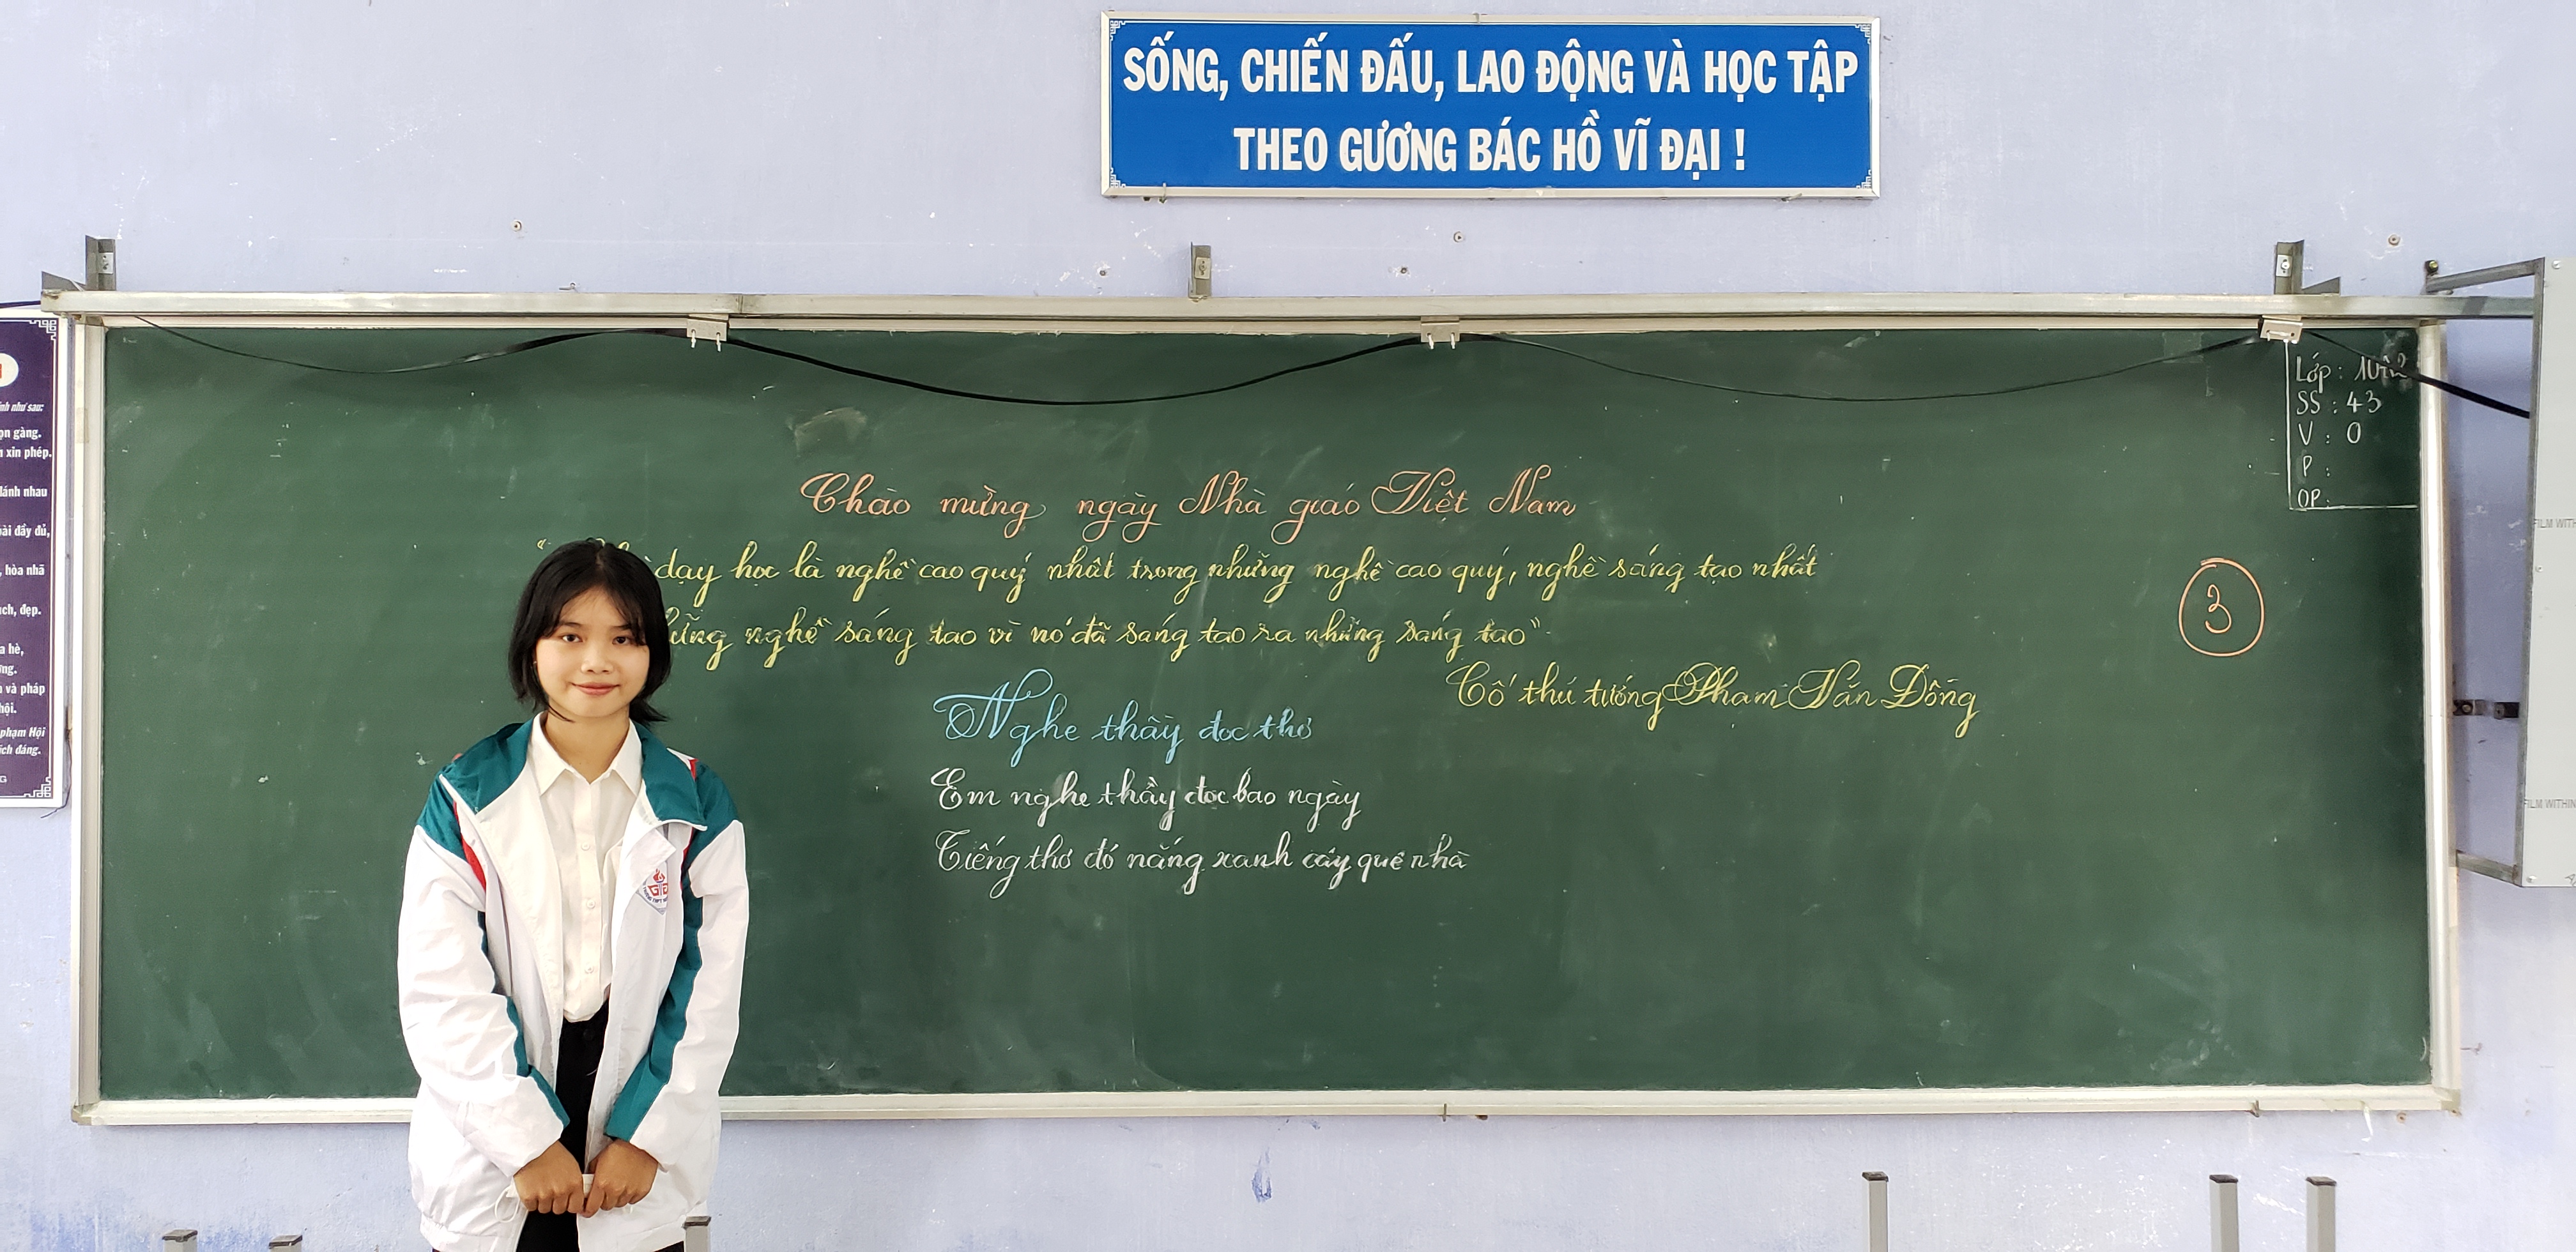 SỐNG, CHIẾN ĐẤU, LAO ĐỘNG VÀ HỌC TẬP
THEO GƯƠNG BÁC HỒ VĨ ĐẠI !
Lớp :
SS : 43
V : 0
P :
OP :
Chào mừng ngày Nhà giáo Việt Nam
dạy học là nghề cao quý nhất trong những nghề cao quý, nghề sáng tạo nhất
nghề sáng tạo vì nó đã sáng tạo ra những sáng tạo"
3
Cố thủ tướng Phạm Văn Đồng
Nghe thầy đọc thơ
Em nghe thầy đọc bao ngày
Tiếng thơ đỏ nắng xanh cây quê nhà
ính như sau:
ọn gàng.
xin phép.
đánh nhau
ài đầy đủ,
, hòa nhã
ch, đẹp.
a hè,
ng.
và pháp
hội.
phạm Hội
ích đáng.
G
FILM WITH
FILM WITHIN